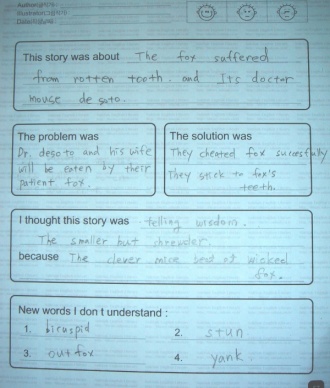 Author(글작가) :
Illustrator(그림작가) :
Date(날짜) :
This story was about The fox suffered
from rotten tooth. and Its doctor
mouse de soto.
The problem was
Dr. desoto and his wife
will be eaten by their
patient fox.
The solution was
They cheated fox sucessfully
They stick to fox's
teeth.
I thought this story was telling wisdom.
The smaller but shrewder.
because The clever mice beat at wicked
fox.
New words I don t understand :
1. bicuspid
2. stun
3. outfox
4. yank